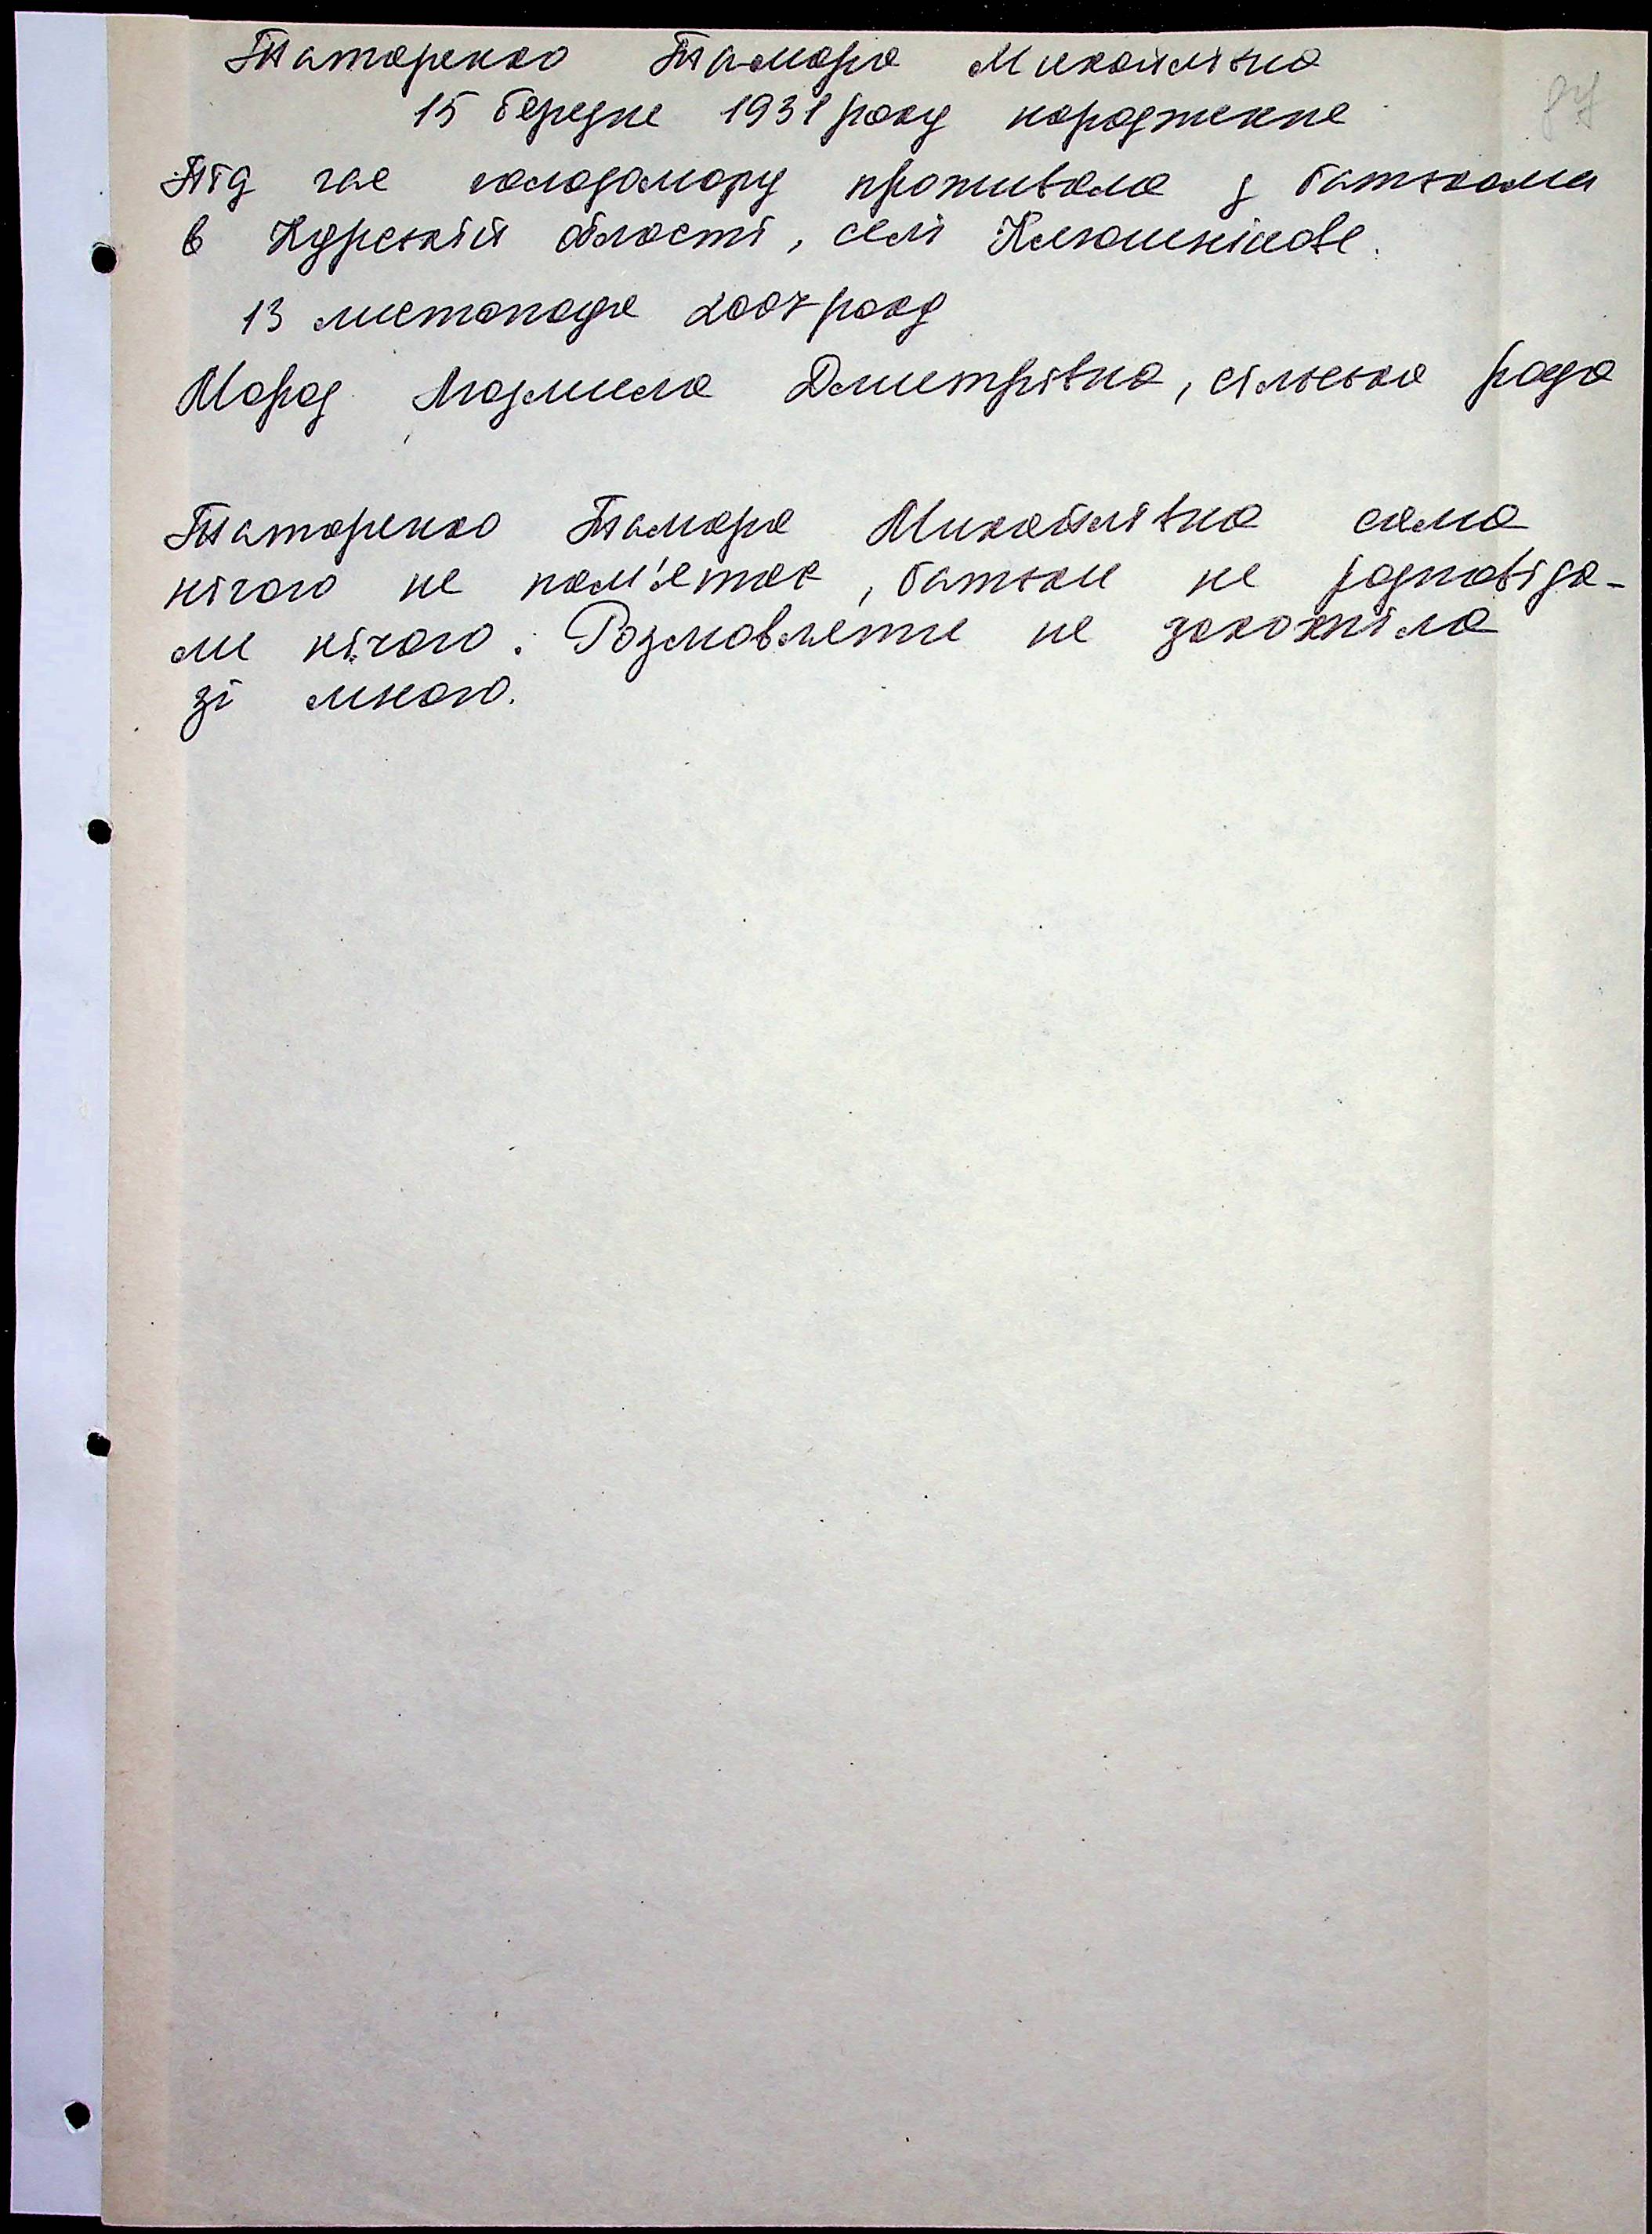 Татаренко Тамара Михайлівна
15 березня 1931 року народження
Під час голодомору проживала з батьками
в Курській області, селі Клюшнікове.
13 листопада 2007 року
Мороз Людмила Дмитрівна, сільська рада
Татаренко Тамара Михайлівна сама
нічого не пам'ятає, батьки не розповіда-
ли нічого. Розмовляти не захотіла
зі мною.